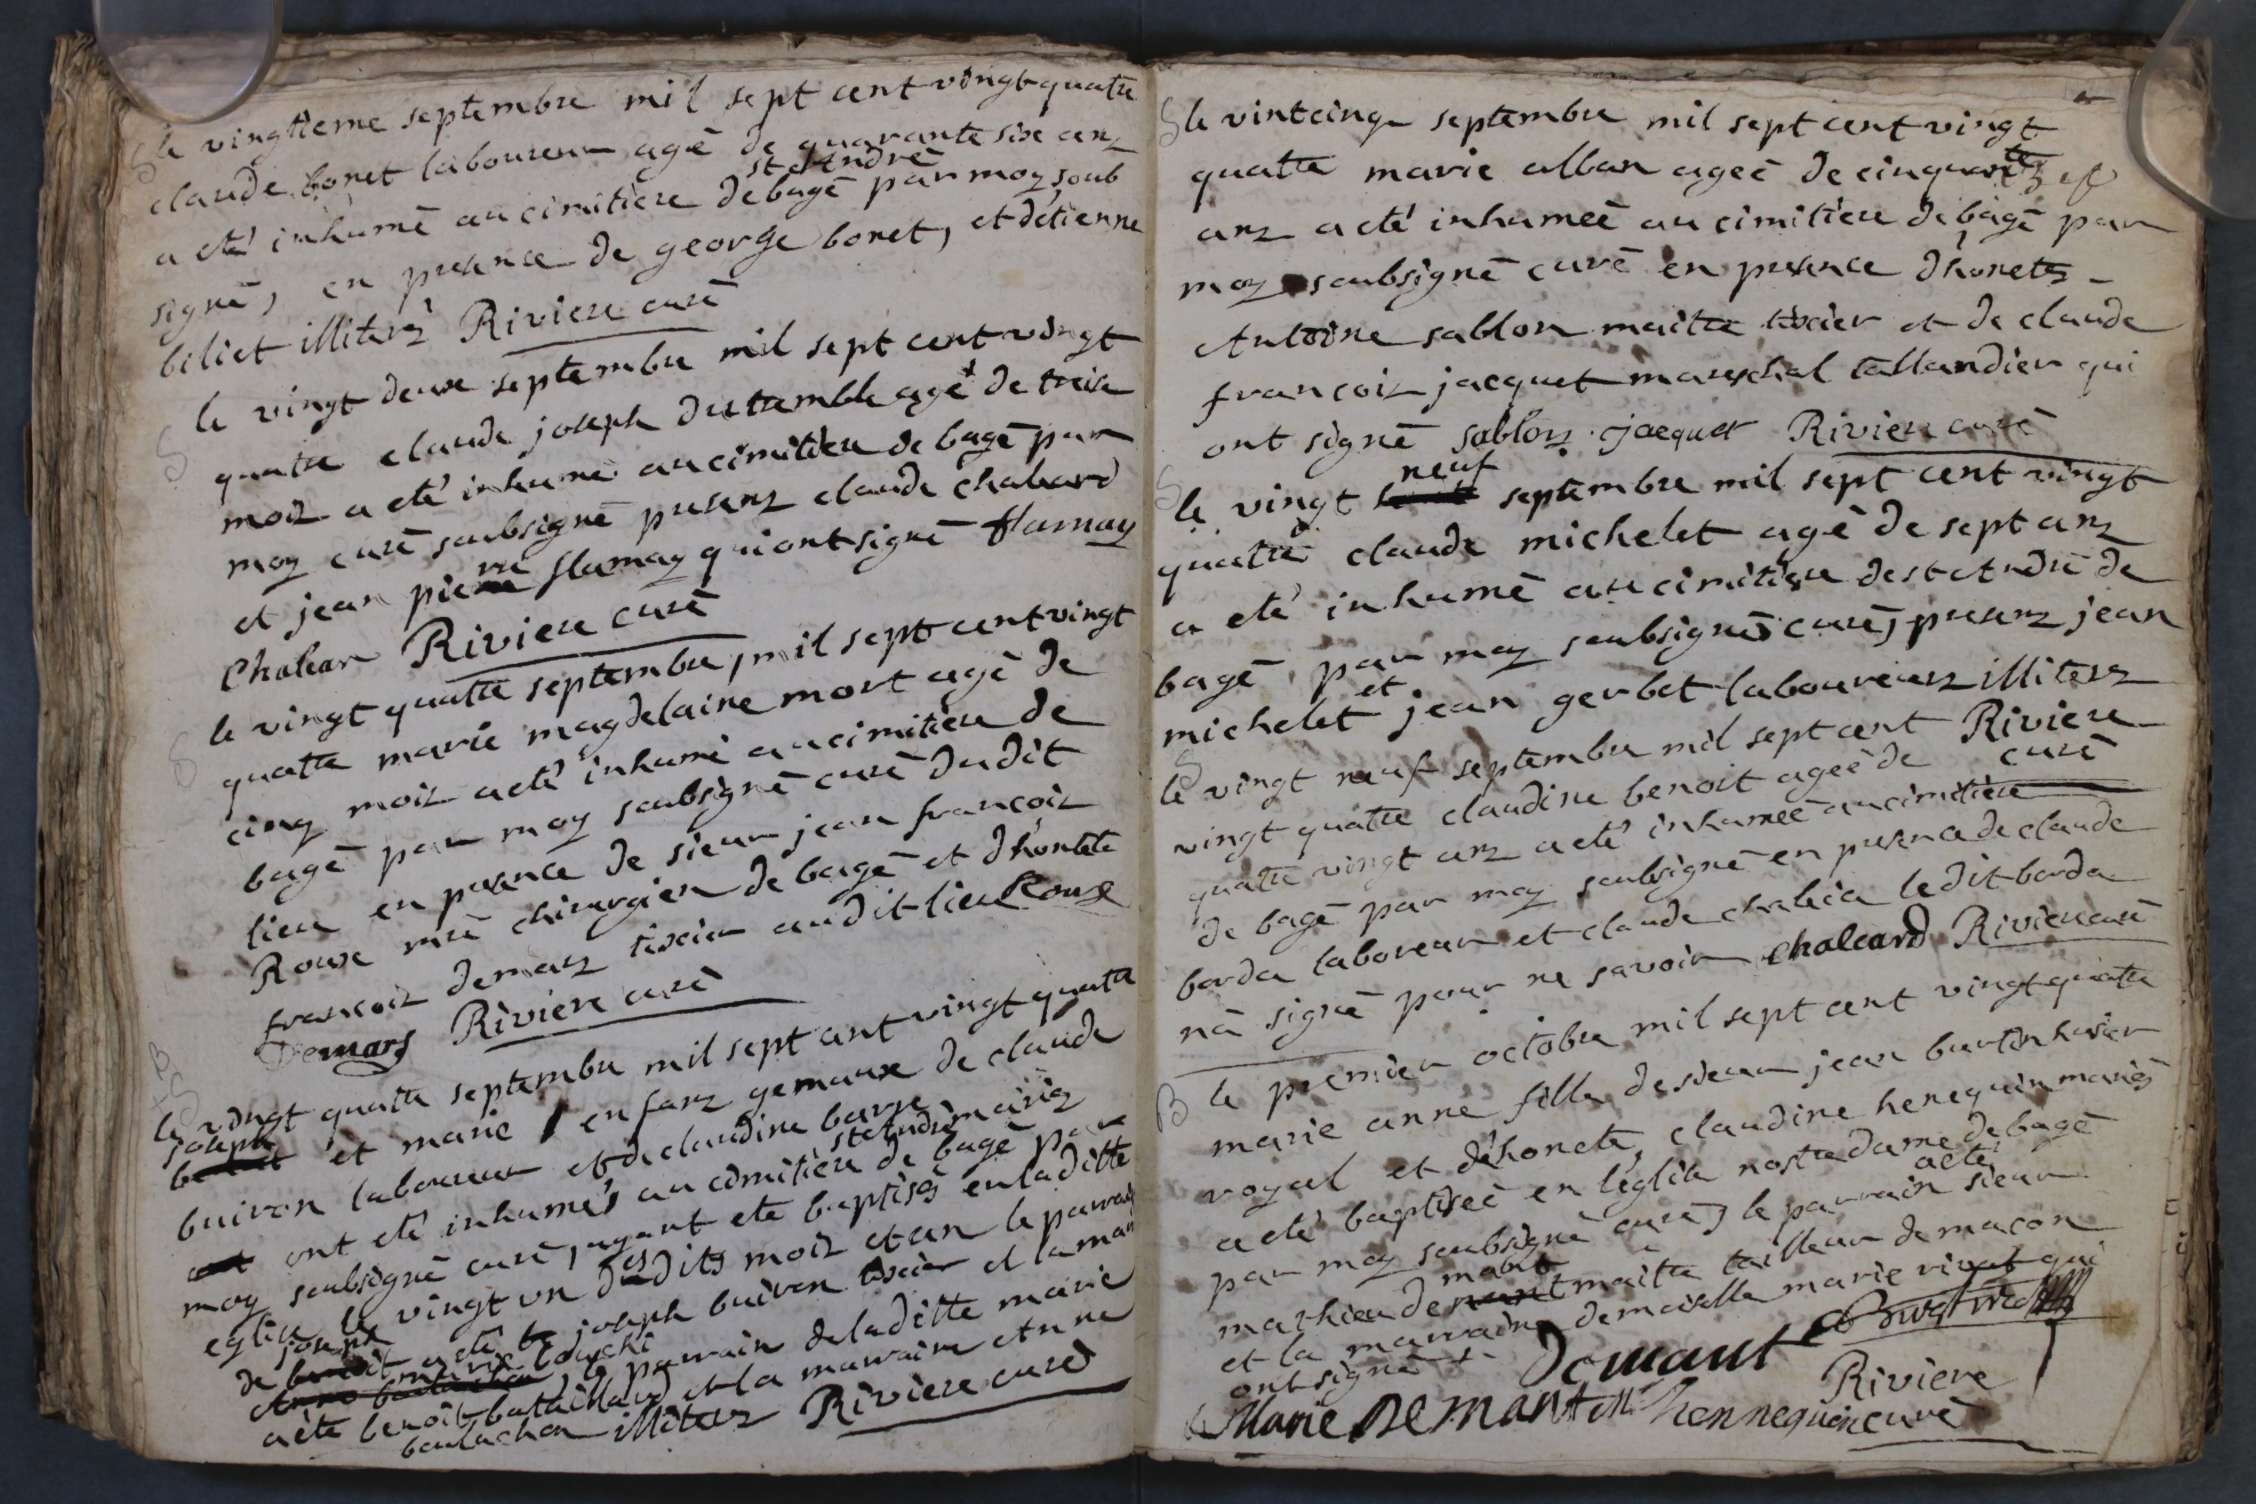 S le vingtieme septembre mil sept cent vingt quatre
claude bonet laboureur agé de quarante six anz
st Andrè
a eté inhumé au cimitiere de bagé par moy soub
signé, en presence de george bonet, et d'étienne
biliet illiterz Riviere curé
S le vingt deux septembre mil sept cent vingt
quatre claude joseph dutamble agé de treize
moiz a eté inhumé au cimitiere de bagé par
moy curé soubsigné presenz claude chaleard
et jean pierre flamay qui ont signé flamay
Chalear Riviere curé
S le vingt quatre septembre, mil sept cent vingt
quatre marie magdelaine mort agé de
cinq moiz a eté inhumé au cimitiere de
bagé par moy soubsigné curé dudit
lieu en presence de sieur jean françoiz
Roux mre chirurgien de bagé et d'honete
françoiz demarz tixier audit lieu Roux
Demars Riviere curé
B
S
le vingt quatre septembre mil sept cent vingt quatre
joseph
et marie enfanz gemaux de claude
buiron laboureur et de claudine barje mariez
st andrè
ont eté inhumés au cimitiere de bagé par
moy soubsigné curé, ayant eté baptisés en la ditte
eglise le vingt un desdits moiz et an le parrain
joseph
de a eté joseph buiron tixier et la mar
marie bouchi
le parrain de la ditte marie
a eté benoit bataillard et la marraine Anne
boulachon illiterz Riviere curé
S le vintcinq septembre mil sept cent vingt
quatre marie alban ageé de cinquante
anz a eté inhumeé au cimitiere de bagé par
moy soubsigné curé en presence d'honetes
Antoine sablon maitre tixier et de claude
françoiz jacquet mareschal tallandier qui
ont signé sablon jacquet Riviere curé
neuf
S le vingt septembre mil sept cent vingt
quatre claude michelet agé de sept anz
a eté inhumé au cimitiere de st Andre de
bagé, par moy soubsigné curé, presenz jean
et
michelet jean gerbet laboureurz illiterz
S Riviere
le vingt neuf septembre mil sept cent curé
vingt quatre claudine benoit ageé de
quatre vingt anz a eté inhumeé au cimitiere
de bagé par moy soubsigné en presence de claude
borda laboreur et claude chalear le dit borda
n'a signé pour ne savoir chaleard Riviere curé
B le premier octobre mil sept cent vingt quatre
marie anne fille de sieur jean burtin husier
royal et d'honete claudine henequin mariés
a eté baptiseé en l'église nostre dame de bagé
par moy soubsigné curé, le parrain a eté sieur
mant
mathieu de maitre tailleur de macon
et la marraine demoiselle marie rivet qui
ont signé Demant
Riviere
Marie Demant hennequin curé